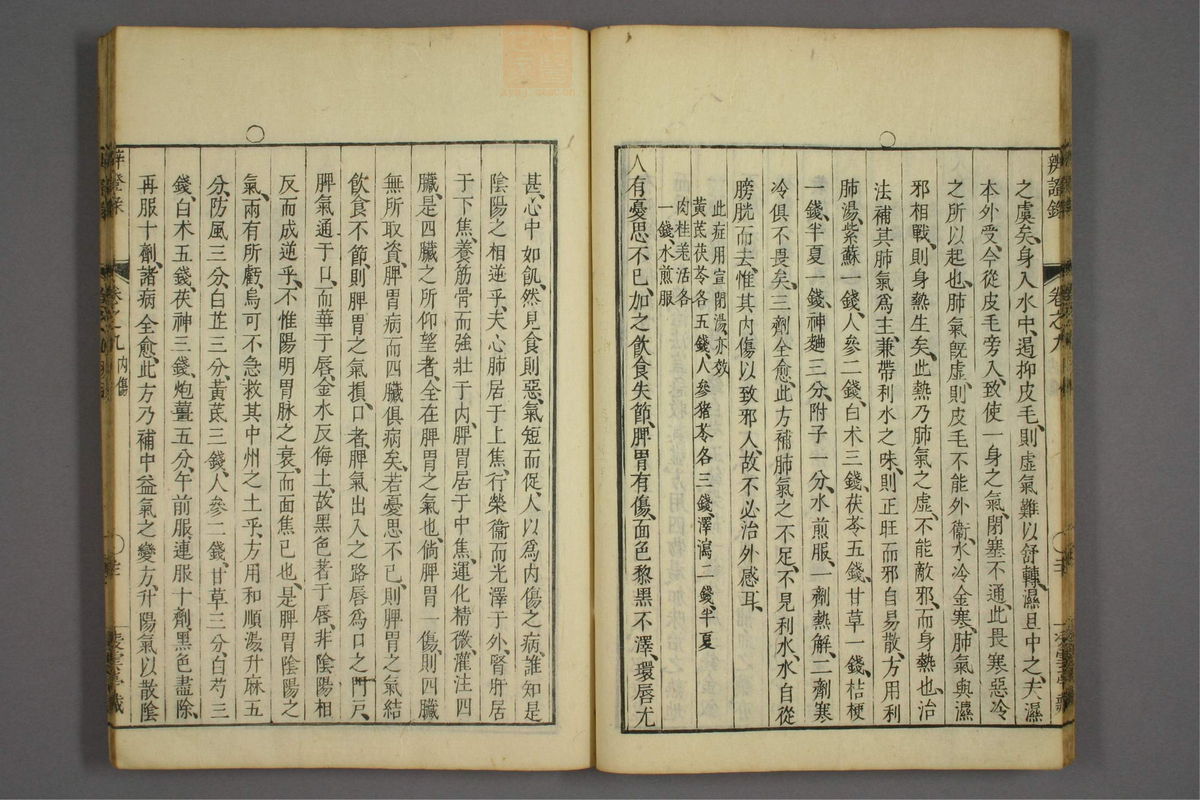 辨證錄 卷之九
之虞矣、身入水中、遏抑皮毛、則虛氣難以舒轉、濕且中之、夫濕
本外受、今從皮毛旁入、致使一身之氣、閉塞不通、此畏寒惡冷
之所以起也、肺氣旣虛、則皮毛不能外衞、水冷金寒、肺氣與濕
邪相戰、則身熱生矣、此熱乃肺氣之虛、不能敵邪而身熱也、治
法補其肺氣爲主、兼帶利水之味、則正旺而邪自易散、方用利
肺湯、紫蘇一錢、人參二錢、白朮三錢、茯苓五錢、甘草一錢、桔梗
一錢、半夏一錢、神麯三分、附子一分、水煎服、一劑熱解、二劑寒
冷俱不畏矣、三劑全愈、此方補肺氣之不足、不見利水、水自從
膀胱而去、惟其內傷以致邪入、故不必治外感耳、
此症用宣閉湯、亦效
黃芪茯苓各五錢、人參猪苓各三錢、澤瀉二錢、半夏
肉桂羌活各
一錢、水煎服
人有憂思不已、加之飲食失節、脾胃有傷、面色黎黑不澤、環唇尤
甚、心中如飢、然見食則惡、氣短而促、人以爲內傷之病、誰知是
陰陽之相逆乎、夫心肺居于上焦、行榮衞而光澤于外、腎肝居
于下焦、養筋骨而強壯于內、脾胃居于中焦、運化精微、灌注四
臟、是四臟之所仰望者、全在脾胃之氣也、倘脾胃一傷、則四臟
無所取資、脾胃病而四臟俱病矣、若憂思不已、則脾胃之氣結
飲食不節、則脾胃之氣損、口者、脾氣出入之路、唇爲口之門戶、
脾氣通于口、而華于唇、金水反侮土、故黑色著于唇、非陰陽相
反而成逆乎、不惟陽明胃脉之衰、而面焦已也、是脾胃陰陽之
氣、兩有所虧、烏可不急救其中州之土乎、方用和順湯、升麻五
分、防風三分、白芷三分、黃芪三錢、人參二錢、甘草三分、白芍三
錢、白朮五錢、茯神三錢、炮薑五分、午前服、連服十劑、黑色盡除、
再服十劑、諸病全愈、此方乃補中益氣之變方、升陽氣以散陰
卷之九 內傷